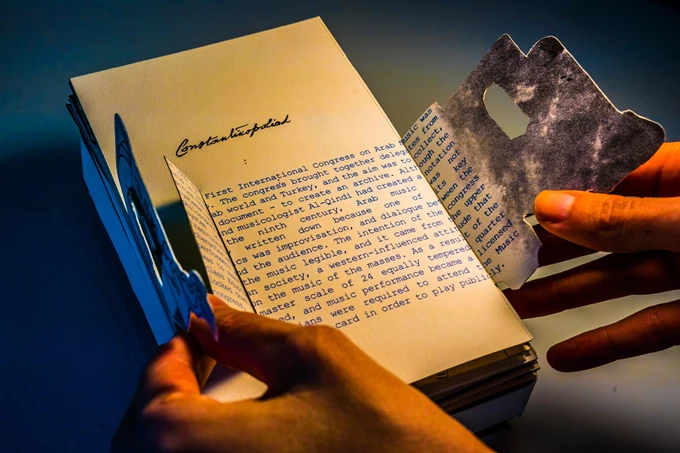 Constantinopoliad
First International Congress on Arab music was
The congress brought together deleg tes from
ab world and Turkey, and the aim was collect,
document - to create an archive. Alth ough the
nd musicologist Al-Qindi had created notation
the ninth century, Arab music was not
written down because one of its key
cs was improvisation, dialogue be tween the
nd the audience. The intention of the congress
n music legible, and it came from the upper
society, a western-influenced attit ude that
n the music of the masses. As a resul t of the
master scale of 24 equally tempered quarter
ed, and music performance became
ians were required to attend Music
card in order to play publi ly.